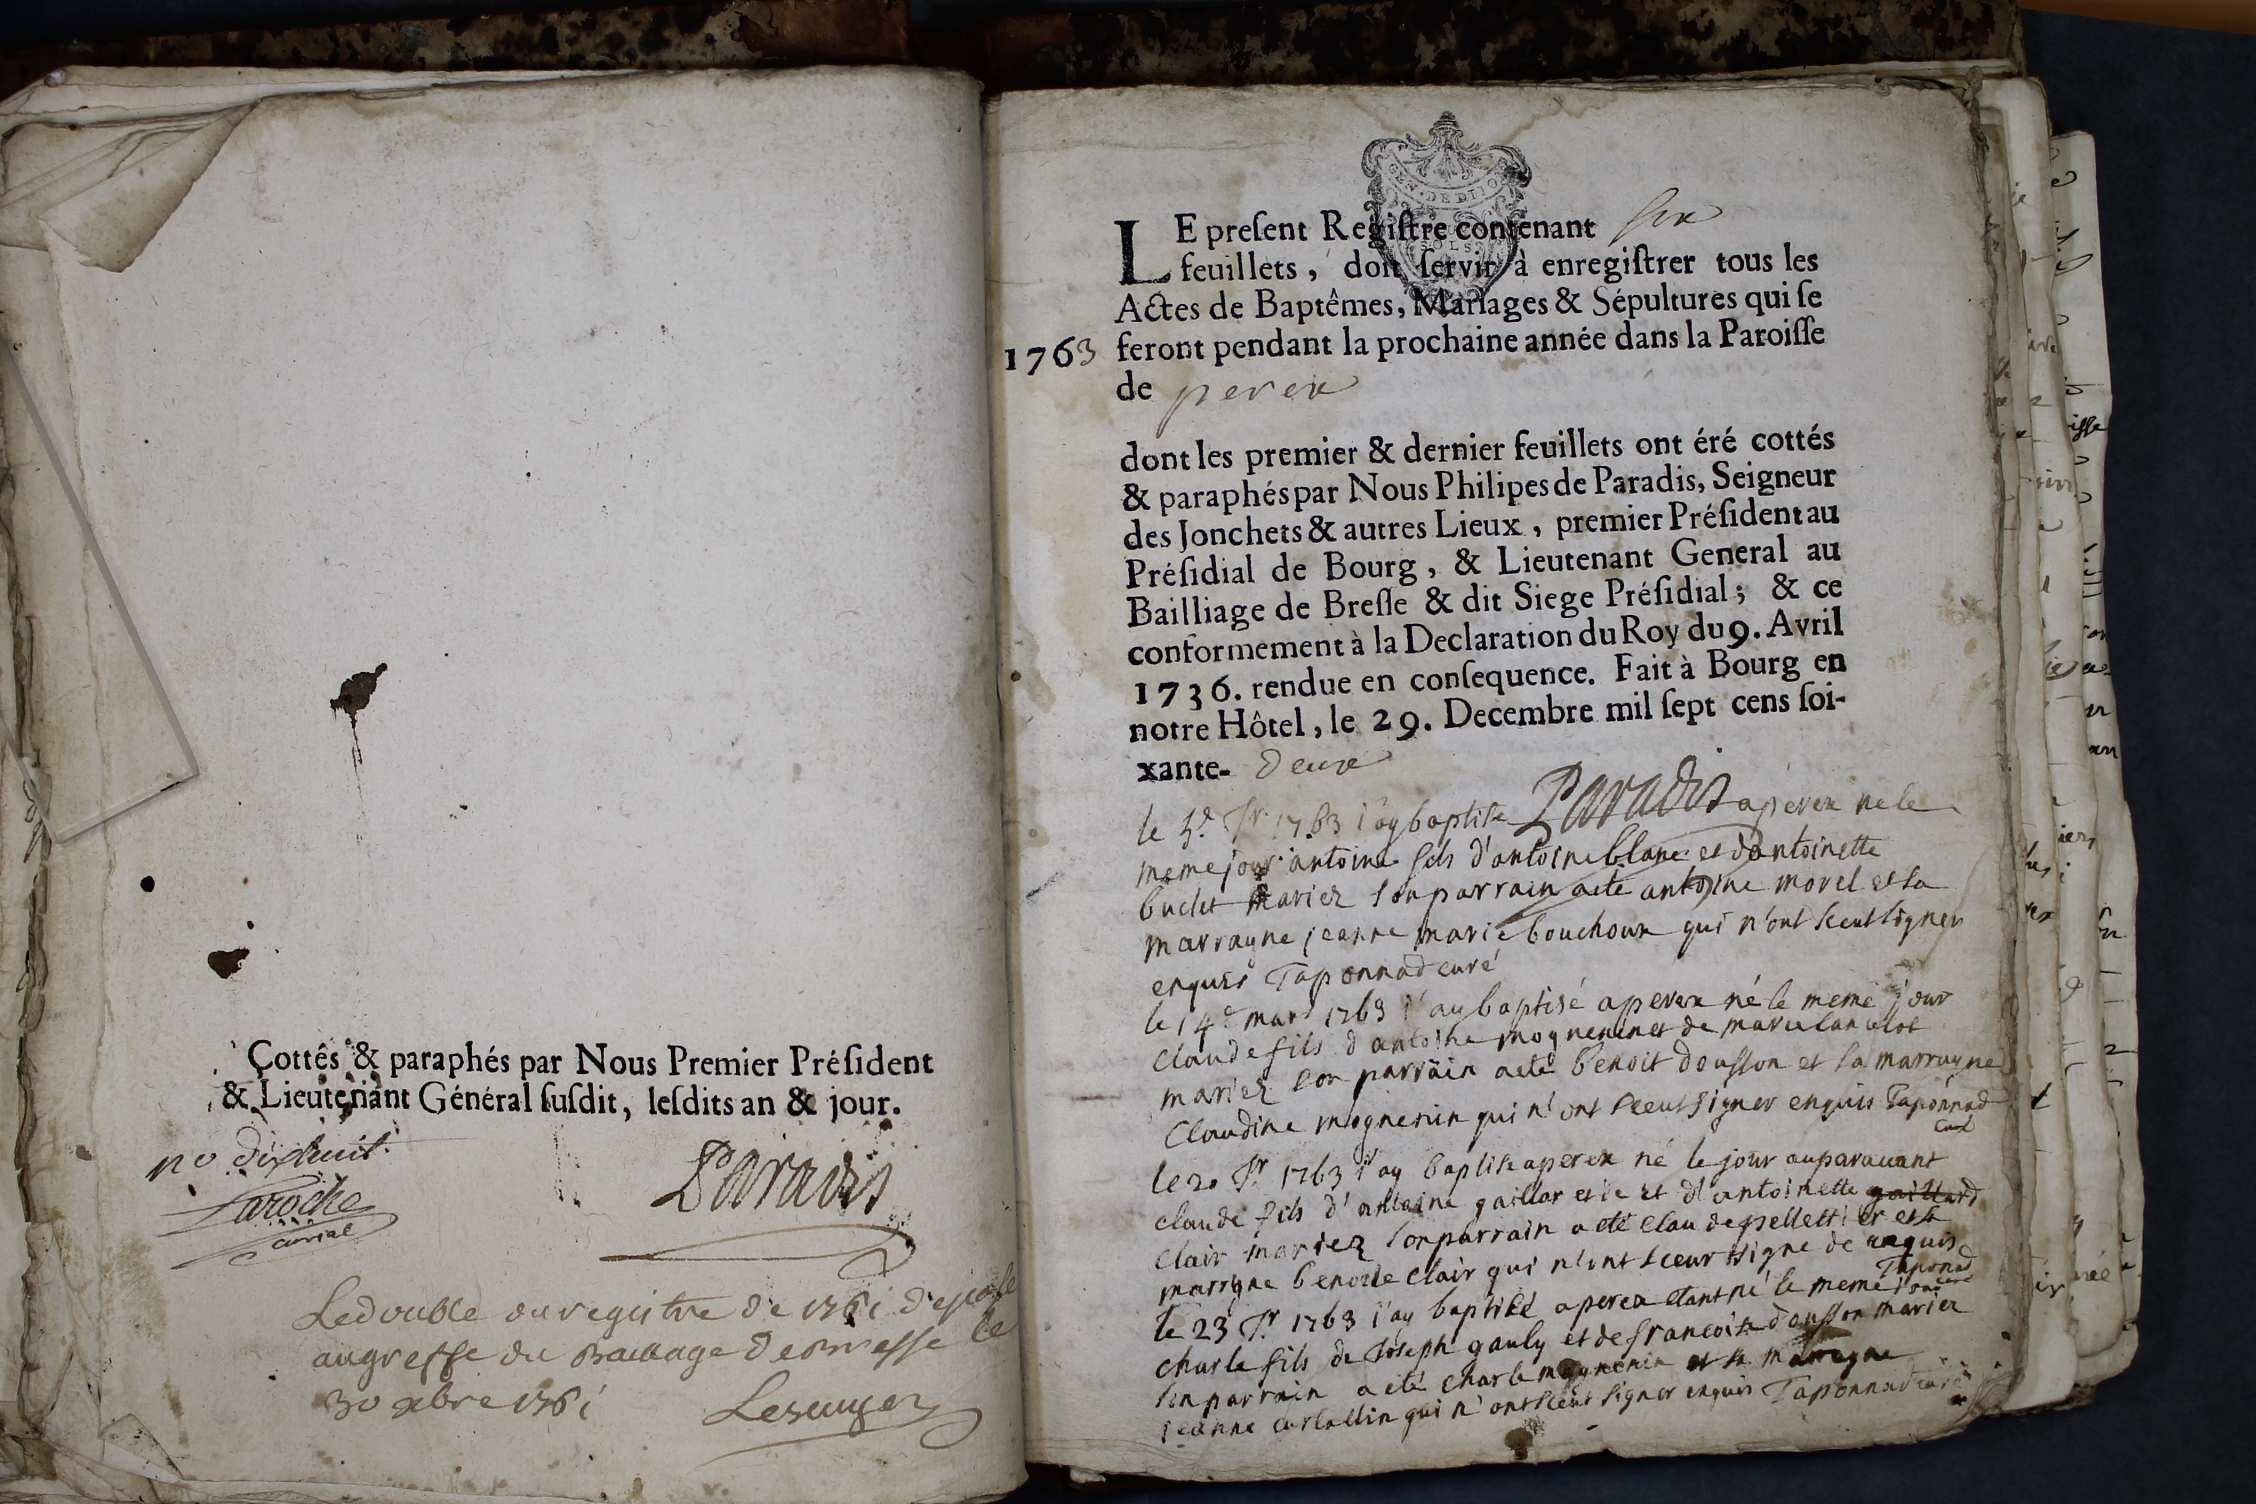 Çottés & paraphés par Nous Premier Président
& Lieutenant Général susdit, lesdits an & jour.
no dixhuit
Laroche
curial
Paradis
Le double du registre de 1761 deposé
au greffe du Baillage de Bresse le
30 xbre 1761
GEN. DE DIJON
SOLS
LE present Registre contenant six
feuillets, doit servir à enregistrer tous les
Actes de Baptêmes, Mariages & Sépultures qui se
1763 feront pendant la prochaine année dans la Paroisse
de perex
dont les premier & dernier feuillets ont éré cottés
& paraphés par Nous Philipes de Paradis, Seigneur
des Jonchets & autres Lieux, premier Présidentau
Présidial de Bourg, & Lieutenant General au
Bailliage de Bresse & dit Siege Présidial; & ce
conformement à la Declaration du Roy du 9. Avril
1736. rendue en consequence. Fait à Bourg en
notre Hôtel, le 29. Decembre mil sept cens soi-
xante- deux
Paradis
le 1763 i'ay baptise a perex ne le
meme jour antoine fils d'antoine blanc et d'antoinette
buclet mariez son parrain a ete antoine morel et sa
marrayne jeanne marie bouchoux qui n'ont sceut signer
enquis Taponnad curé
le 14e mars 1763 i'ay baptisé a perex né le meme jour
claude fils d'antoine mognenin et de marie
mariez son parrain a eté benoit dousson et sa marrayne
Claudine mognenin qui n'ont sceut signer enquis Taponnad
curé
le 20 1763 i'ay baptise a perex né le jour auparavant
claude fils d'antoine gaillar et de et d'antoinette gaillard
clair mariez son parrain a eté claude pelletier et sa
marrayne benoite clair qui n'ont sceut signe de enquis
Taponad
curé
le 23 1763 i'ay baptisé a perex etant né le meme jour
charle fils de Joseph gauly et de francoise dousson mariez
son parrain a eté charle mognenin et sa marrayne
jeanne qui n'ont sceut signer enquis Taponnad curé